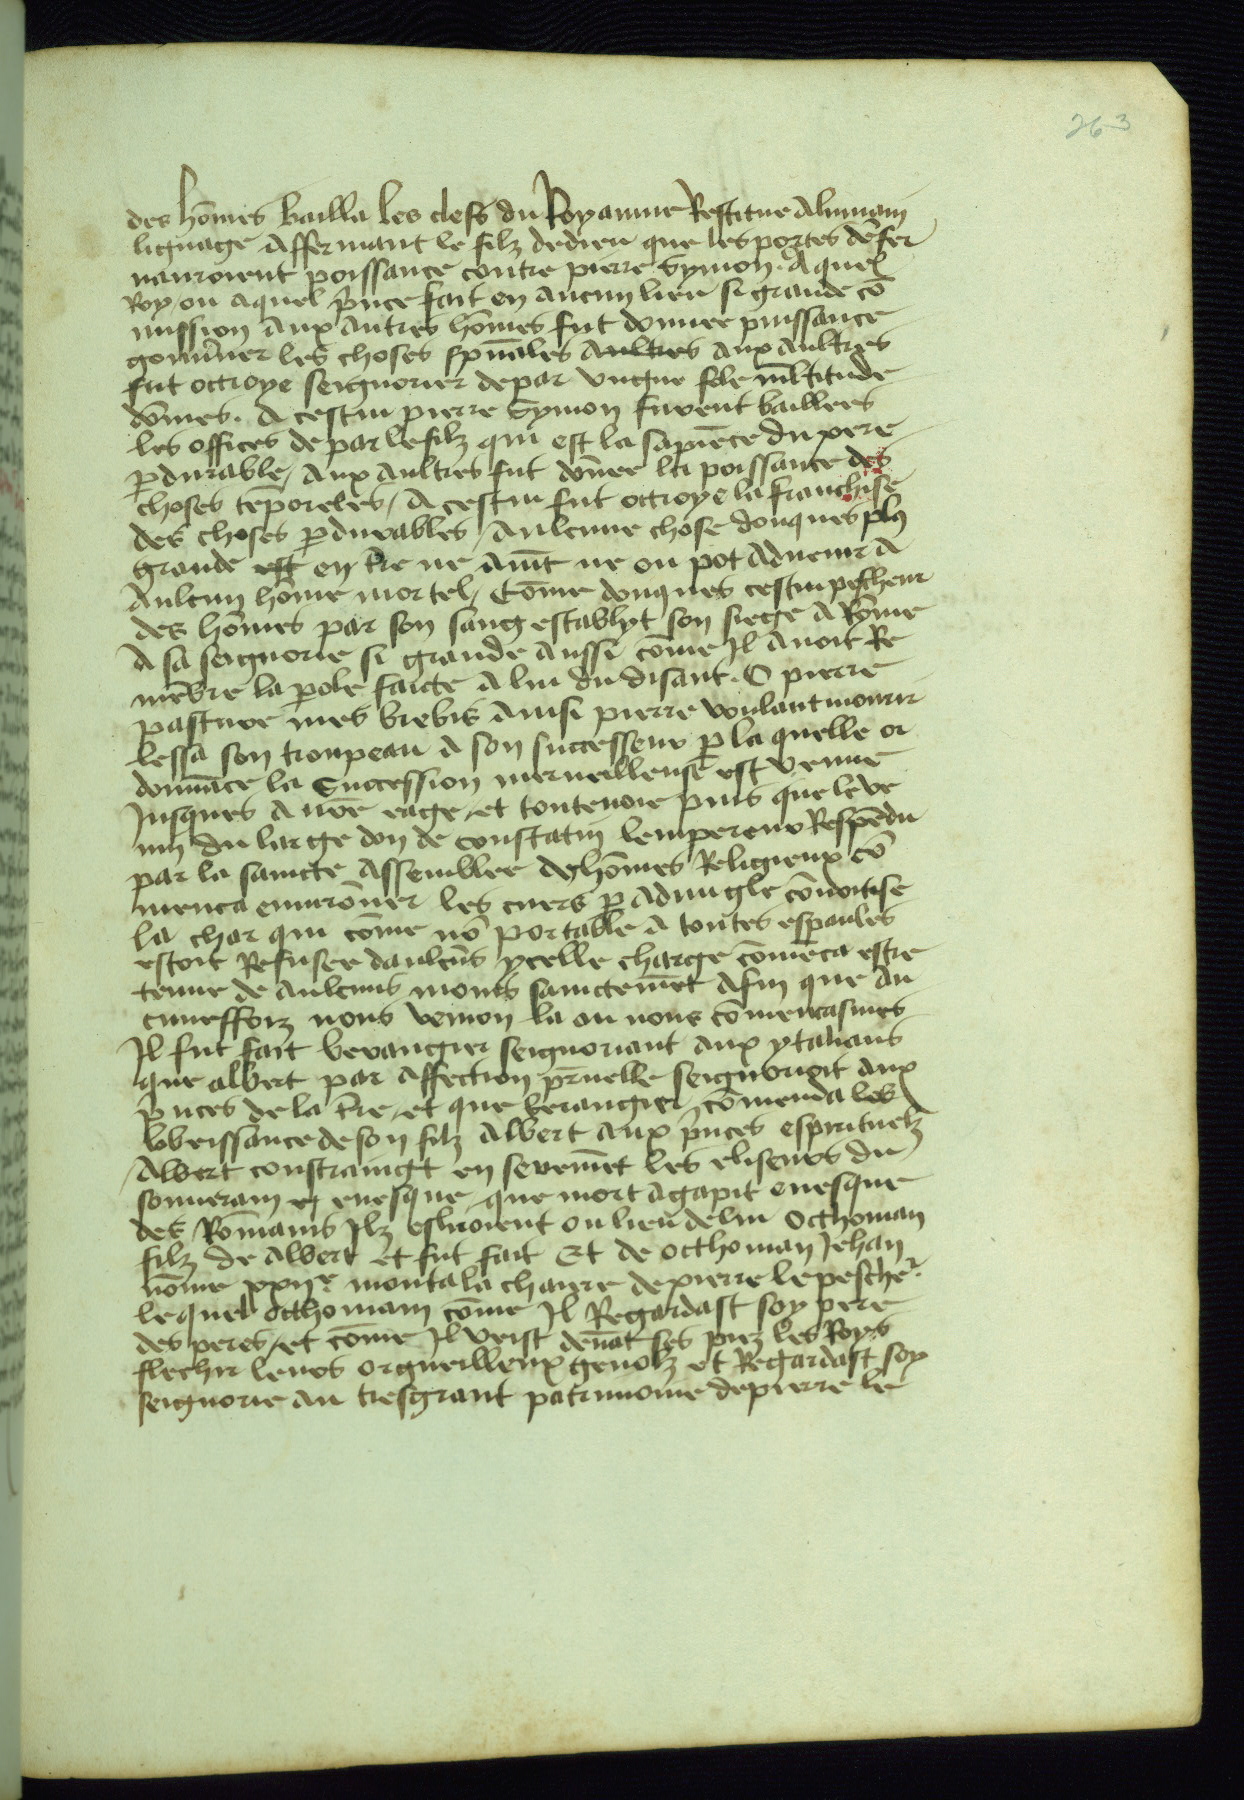 263
des hōmes bailla les clefs du Royaume Restitue Alumain
lignage Affermant le filz dedieu que les portes dēfer
nauroient poissance contre pierre Symon. A quel
Roy ou aquel p̄nce fait en Aucun lieu si grande cō
mission Aux Autres hōmes fut donnee puissance
gouūner les choses spūales Aultres Aux Aultres
fut octroye seignorier depar vngne fole mltitude
dōmes. A cestui pierre Symon furent baillees
les offices de par le filz qui est la sapiēce du pere
p̄durable / Aux Aultres fut dōnee la poissance des
choses tēporeles / A cestui fut octroye la franchise
des choses p̄durables / Aulcune chose donques plꝰ
grande est en t̄re ne Auīt ne ou pot Aduenir A
Aulcun hōme mortel / Cōme donques cestui pescheur
des hōmes par son sang establyt son siege A Rōme
A sa seignorie si grande Aussi cōme Il Auoit Re
mēbre la p̄ole faicte A lui du disant. O pierre
pasture mes brebis Ainsi pierre voulant mourir
lessa son troupeau A son successeur p̄ la quelle or
donnāce la Succession merueilleuse est venue
Iusques A nr̄e eage / et toutenoie puis que le ve
nin du large don de constatin lempereur Respēdu
par la saincte Assemblee de hōmes Religieux cō
menca enuirōner les cuers p̄ Adungle cōuoitise
la char qui cōme nō portable A toutes espaules
estoit Refusee daulcūs ycelle charge cōmēca estre
tenue de Aulcuns moms sainctemēt Afin que Au
cuneffoiz nous venion la ou nous cōmencasmes
Il fut fait berangier seignoriant Aux ytalians
que albert par Affection p̄nelle seignorioit Aux
p̄nces de la t̄re / et que berangier cōmenda les
obeissance de son filz Albert Aux p̄nces espirituelz
Albert constraingt en seremēt les eliseurs du
souuerain et euesque que mort Agapit euesque
des Rōmains Ilz esliroient ou lieu de lui Octhoman
filz de Albert et fut fait Et de octhoman Jehan
nōme xxijᵉ monta la chaire de pierre le peschēr.
le quel octhomam cōme Il Regardast soy pere
des peres / et cōme Il veist deuāt ses piez les Roys
flechir leurs orgueilleux genolz et Regardast soy
seignorie au tresgrant patrimoine de pierre le